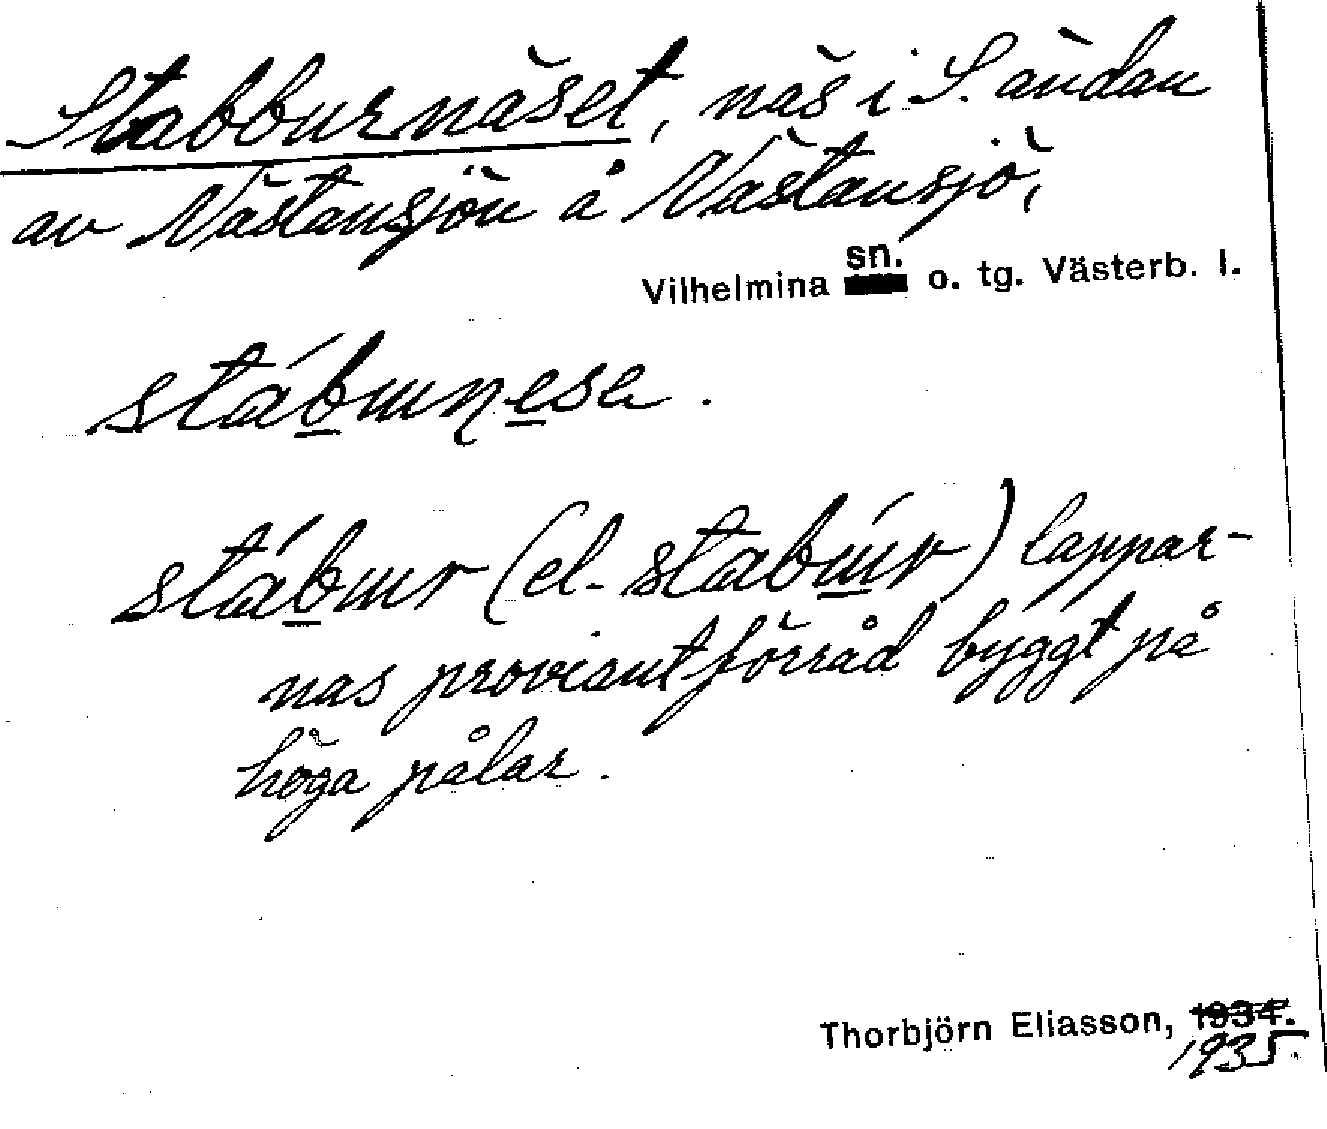 Stabburnäset, näs i S. ändan
av Västansjön å Västansjö,
Vilhelmina sn. o. tg. Västerb. l.
stábɯrnese.
stábɯr (el. stabɯ́r) lappar-
nas proviantförråd byggt på
höga pålar.
Thorbjörn Eliasson, 1934.
1935.